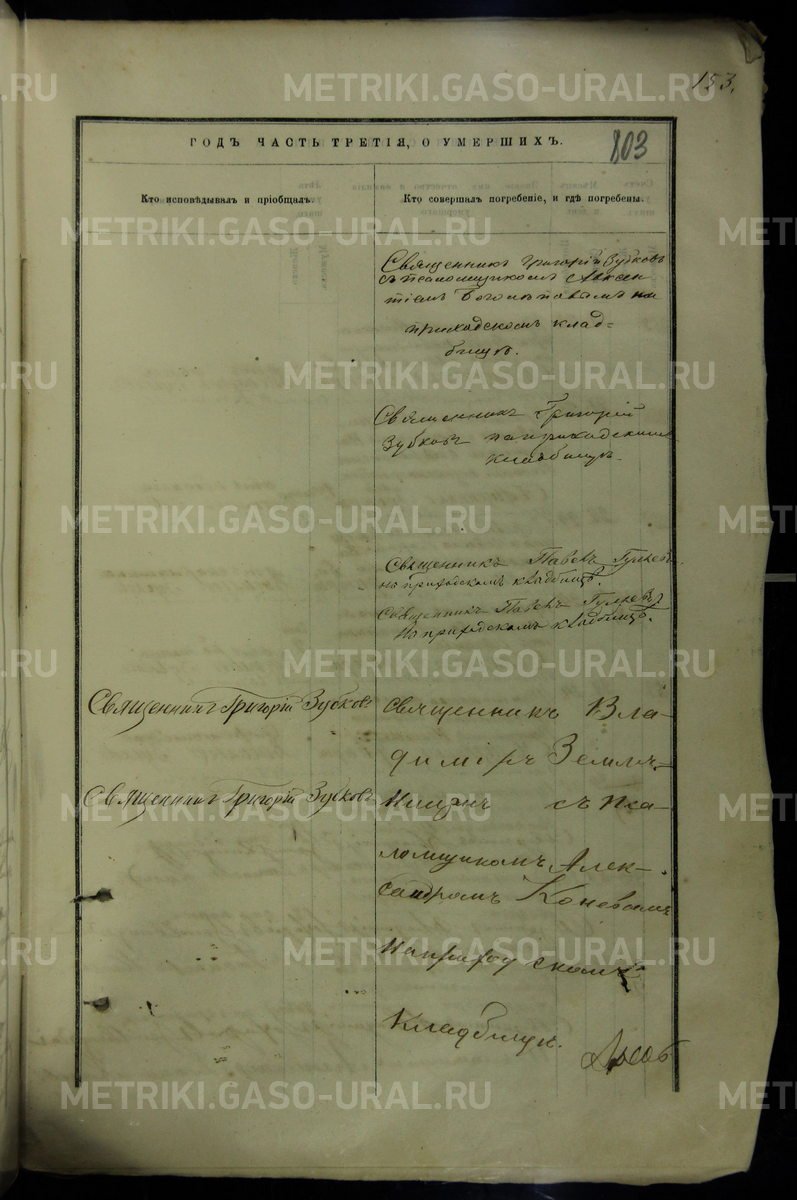 153.
ГОДЪ ЧАСТЬ ТРЕТІЯ, О УМЕРШИХЪ.
103
Кто исповѣдывалъ и пріобщалъ.
Кто совершалъ погребеніе, и гдѣ погребены.
Священникъ Григорій Зубковъ
съ псаломщикомъ Авксен
тіемъ на
приходскомъ клад=
бищѣ.
Священникъ Григорій
Зубковъ на приходскомъ
кладбищѣ.
Священникъ Павелъ
на приходскомъ кладбищѣ.
Священникъ Павелъ
На приходскомъ кладбищѣ.
Священникъ Григорій Зубковъ
Священникъ Григорій Зубковъ
Священникъ Вла-
диміръ
съ Пса
ломщикомъ Алек-
сандромъ Коневымъ
На приходскомъ
Кладбищѣ.
METRIKI.GASO-URAL.RU